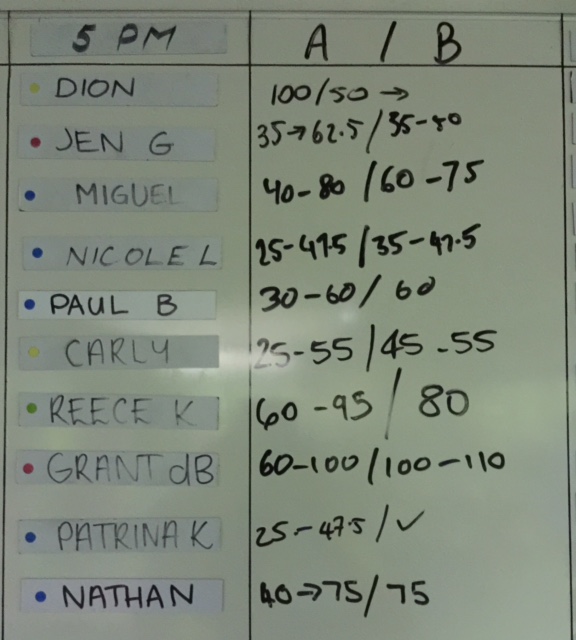 5 PM A / B
DION 100/50 →
JEN G 35→62.5/35-50
MIGUEL 40-80/60-75
NICOLE L 25-47.5/35-47.5
PAUL B 30-60/60
CARLY 25-55/45-55
REECE K 60-95/80
GRANT dB 60-100/100-110
PATRINA K 25-47.5/✓
NATHAN 40→75/75